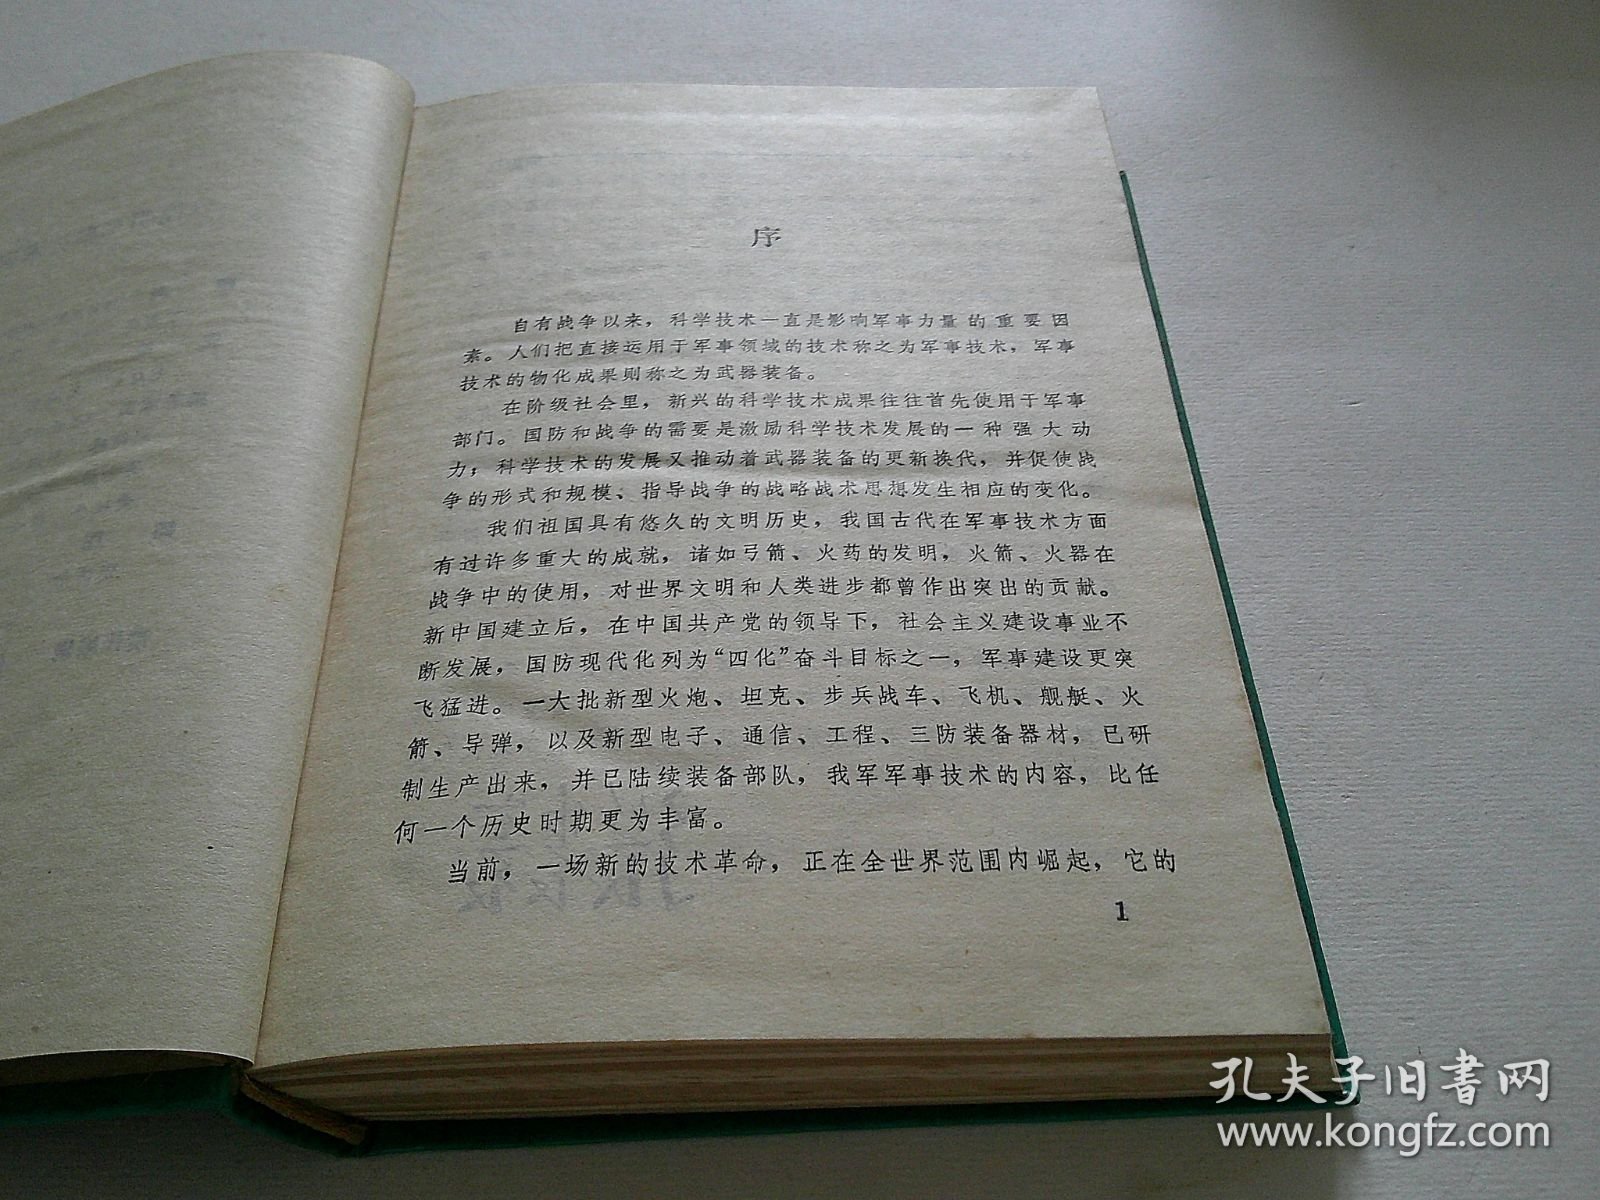 序
自有战争以来，科学技术一直是影响军事力量的重要因
素。人们把直接运用于军事领域的技术称之为军事技术，军事
技术的物化成果则称之为武器装备。
在阶级社会里，新兴的科学技术成果往往首先使用于军事
部门。国防和战争的需要是激励科学技术发展的一种强大动
力；科学技术的发展又推动着武器装备的更新换代，并促使战
争的形式和规模、指导战争的战略战术思想发生相应的变化。
我们祖国具有悠久的文明历史，我国古代在军事技术方面
有过许多重大的成就，诸如弓箭、火药的发明，火箭、火器在
战争中的使用，对世界文明和人类进步都曾作出突出的贡献。
新中国建立后，在中国共产党的领导下，社会主义建设事业不
断发展，国防现代化列为“四化”奋斗目标之一，军事建设更突
飞猛进。一大批新型火炮、坦克、步兵战车、飞机、舰艇、火
箭、导弹，以及新型电子、通信、工程、三防装备器材，已研
制生产出来，并已陆续装备部队，我军军事技术的内容，比任
何一个历史时期更为丰富。
当前，一场新的技术革命，正在全世界范围内崛起，它的
1
孔夫子旧书网
www.kongfz.com